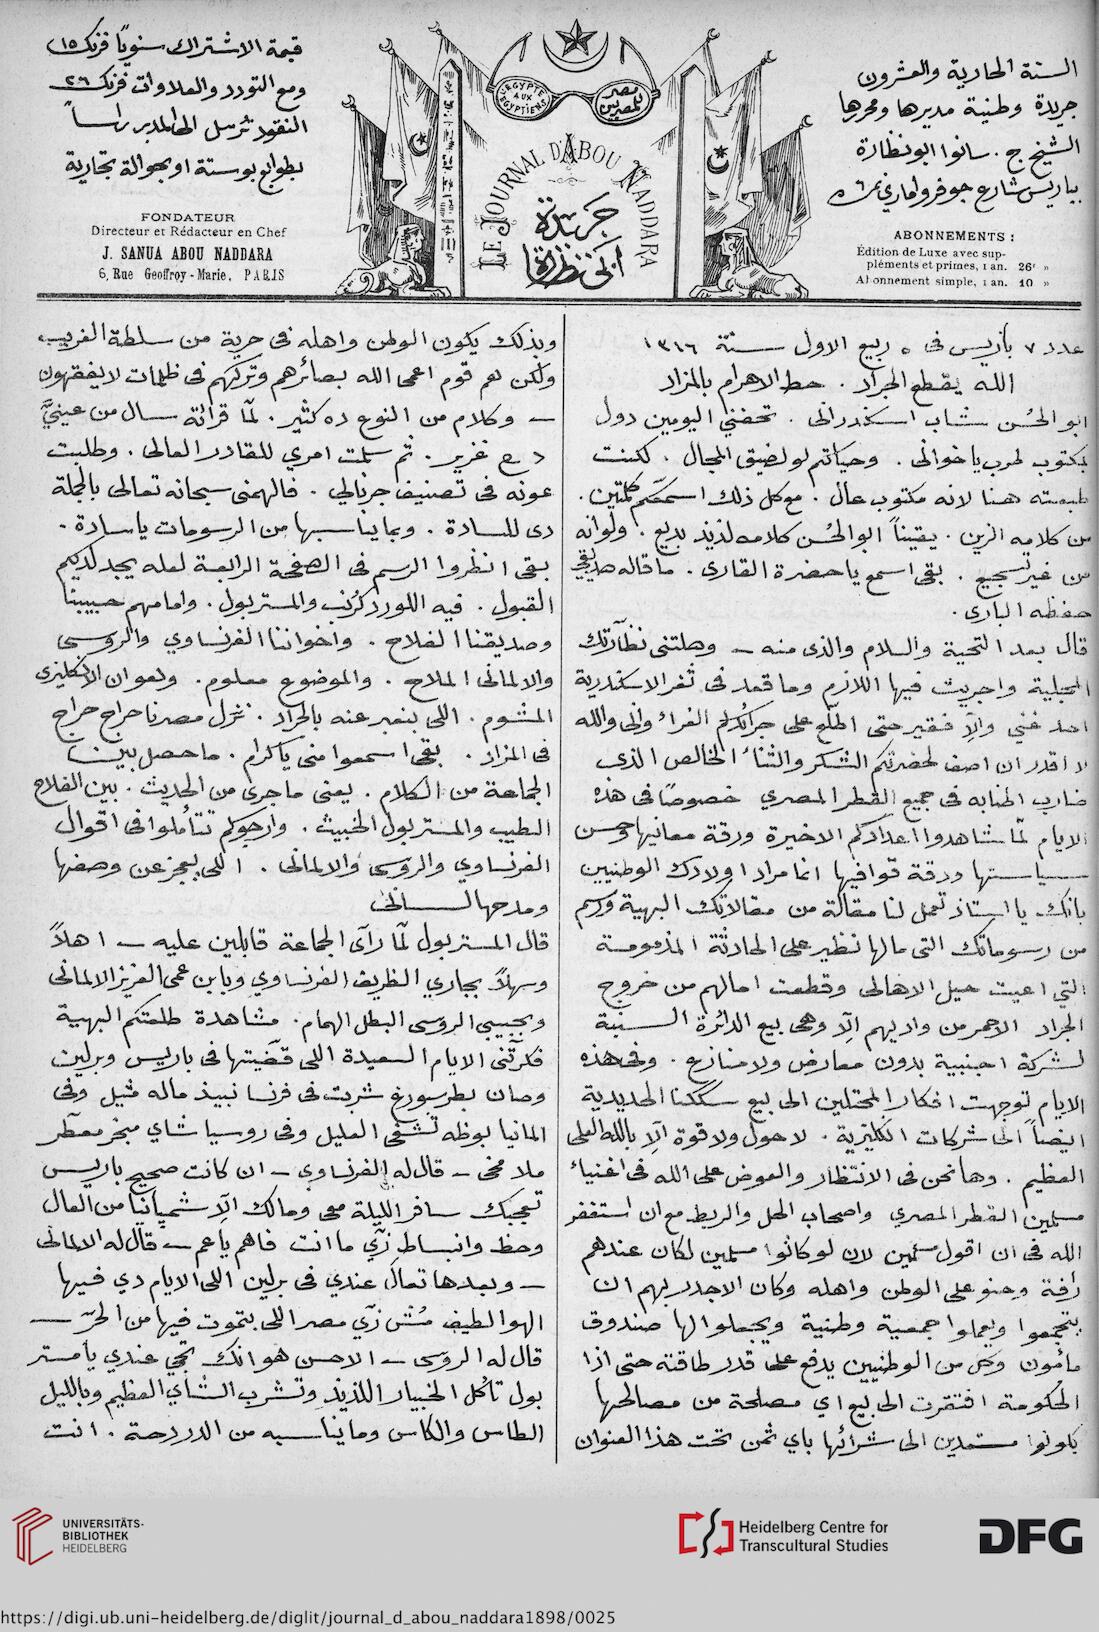 السنة الحادية والعشرون
جريدة وطنية مديرها ومحررها
الشيخ ج. سانوا ابو نظارة
بباريس شارع جوفروا ماري نمرة ٦
ABONNEMENTS :
Édition de Luxe avec sup-
pléments et primes, 1 an. 26f »
Abonnement simple, 1 an. 10 »
L'EGYPTE
AUX
EGYPTIENS
مصر
للمصريين
LE JOURNAL D'ABOU NADDARA
جريدة
ابي نظارة
قيمة الاشتراك سنويًا فرنك ١٥
ومع التودد والعلاوات فرنك ٢٦
النقود ترسل الى المدير رأساً
بطوابع بوستة او بحوالة تجارية
FONDATEUR
Directeur et Rédacteur en Chef
J. SANUA ABOU NADDARA
6, Rue Geoffroy-Marie, PARIS
عدد ٧ باريس في ٥ ربيع الاول سنة ١٣١٦
الله يقطع الجراد . حط الاهرام بالمزاد
ابو الحُسن شاب اسكندراني . تحفني اليومين دول
بمكتوب لحرب ياخواني . وحياتهم لولضيق المجال . لكنت
طبعته هنا لانه مكتوب عال . مع كل ذلك اسمعكم كلمتين .
من كلامه الزين . يقيناً ابو الحُسن كلامه لذيذ بديع . ولو انه
من غير تسجيع . بقى اسمع ياحضرة القارى . ما قاله صديقي
حفظه البارى .
قال بعد التحية والسلام والذى منه ــ وصلتنى نظّارتك
المجلية واجريت فيها اللازم وما قعد فى ثغر الاسكندرية
احد غني والاّ فقير حتى اطّلع على جرائدكم الغراء وانى والله
لا اقدر ان اصف لحضرتكم الشكر والثناء الخالص الذى
ضارب اطنابه فى جميع القطر المصري خصوصًا فى هذه
الايام لمّا شاهدوا اعدادكم الاخيرة ورقة معانيها وحسن
سياستها ودقة قوافيها انما مراد اولادك الوطنيين
بانك يا استاذ تعمل لنا مقالة من مقالاتك البهية ورسم
من رسوماتك التى مالها نظير على الحادثة المذمومة
التي اعيت حيل الاهالى وقطعت امالهم من خروج
الجراد الاحمر من واديهم الّا وهى بيع الدائرة السنية
لشركة اجنبية بدون معارض ولا منازع . وفى هذه
الايام توجهت افكار المحتلين الى بيع سككنا الحديدية
ايضاً الى شركات انكليزية . لا حول ولا قوة الّا بالله العلى
العظيم . وها نحن فى الانتظار والعوض على الله فى اغنياء
مسلمين القطر المصري واصحاب الحل والربط مع ان استغفر
الله فى ان اقول مسلمين لان لو كانوا مسلمين لكان عندهم
رأفة وحنو على الوطن واهله وكان الاجدر بهم ان
يتجمعوا ويعملوا جمعية وطنية ويجعلوا لها صندوق
مأمون وكل من الوطنيين يدفع على قدر طاقته حتى اذا
الحكومة افتقرت الى بيع اي مصلحة من مصالحها
يكونوا مستعدين الى شرائها باي ثمن تحت هذا العنوان
وبذلك يكون الوطن واهله فى حرية من سلطة الغريب
ولكن هم قوم اعمى الله بصائرهم وتركهم فى ظلمات لايفقهون
ــ وكلام من النوع ده كثير . لمّا قرأته سال من عينيَّ
دمع غزير . ثم سلمت امري للقادر العالى . وطلبت
عونه فى تصنيف جرنالي . فالهمنى سبحانه تعالى بالجملة
دى للسادة . وبما يناسبها من الرسومات ياسادة .
بقى انظروا الرسم فى الصفحة الرابعة لعله يجد لديكم
القبول . فيه اللورد كرنب والمستر بول . وامامهم حبيبنا
وصديقنا الفلاح . واخواننا الفرنساوي والروسى
والالمانى الملاح . والموضوع معلوم . وهو ان الانكليزى
المشوم . اللى بنعبر عنه بالجراد . نزل مصرنا حراج حراج
فى المزاد . بقى اسمعوا منى ياكرام . ما حصل بين
الجماعة من الكلام . يعنى ما جرى من الحديث . بين الفلاح
الطيب والمستر بول الخبيث . وارجوكم تتأملوا فى اقوال
الفرنساوي والروسى والالمانى . اللى يعجز عن وصفها
ومدحها لسانى
قال المستر بول لمّا رآى الجماعة قابلين عليه ــ اهلاً
وسهلاً بجاري الظريف الفرنساوي ويابن عمى العزيز الالمانى
وبحبيبى الروسى البطل الهمام . مشاهدة طلعتكم البهية
فكرتنى الايام السعيدة اللى قضيتها فى باريس وبرلين
وصان بطرسبورغ شربت فى فرنسا نبيذ ماله مثيل وفى
المانيا بوظه تشفى العليل وفى روسيا شاي مبخر معطر
ملا مخى ــ قال له الفرنساوى ــ ان كانت صحيح باريس
تعجبك سافر الليلة معى ومالك الّا شمپانيا من العال
وحظ وانبساط زي ما انت فاهم ياعم ــ قال له الالمانى
ــ وبعدها تعالَ عندي فى برلين اللى الايام دي فيها
الهوا لطيف مُش زي مصر اللى بتموت فيها من الحرّ ــ
قال له الروسى ــ الاحسن هو انك تجي عندي يا مستر
بول تأكل الخبيار اللذيذ وتشرب الشاي العظيم وبالليل
الطاس والكاس وما يناسبه من الدردحة . انت
UNIVERSITÄTS-
BIBLIOTHEK
HEIDELBERG
Heidelberg Centre for
Transcultural Studies
DFG
https://digi.ub.uni-heidelberg.de/diglit/journal_d_abou_naddara1898/0025